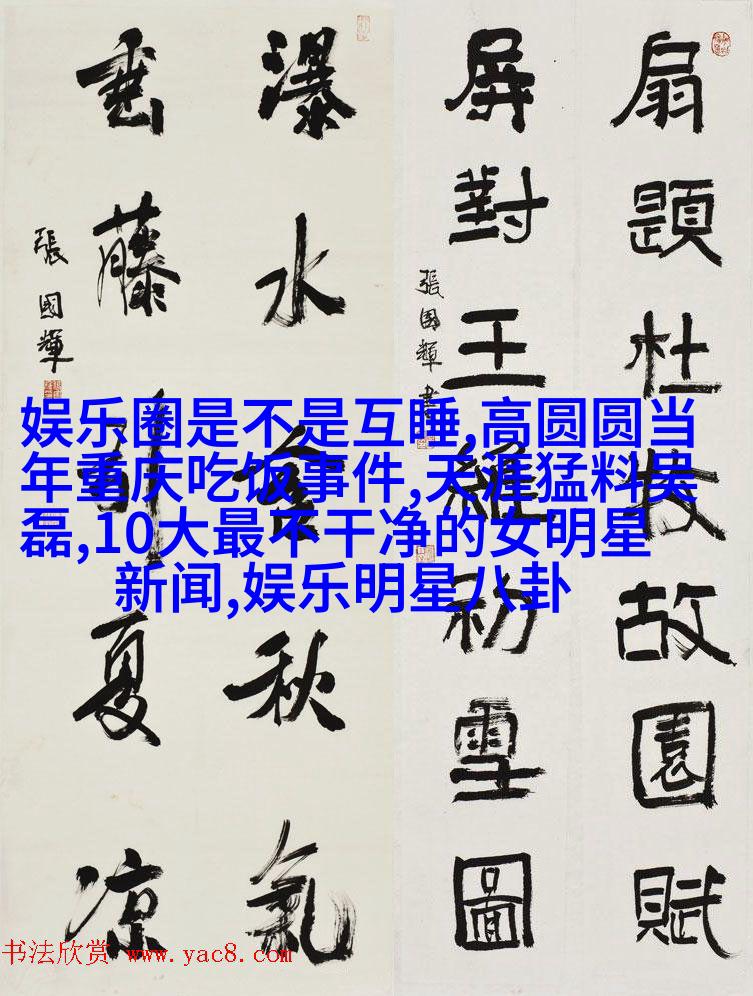 扇題杜牧故園賦
屏對王維初雪圖
張國輝書
瀑水含秋氣
垂藤引夏凉
張國輝
娱乐圈是不是互睡,高圆圆当
年重庆吃饭事件,天涯猛料吴
磊,10大最不干净的女明星
新闻,娱乐明星八卦
书法欣赏 www.yac8.com